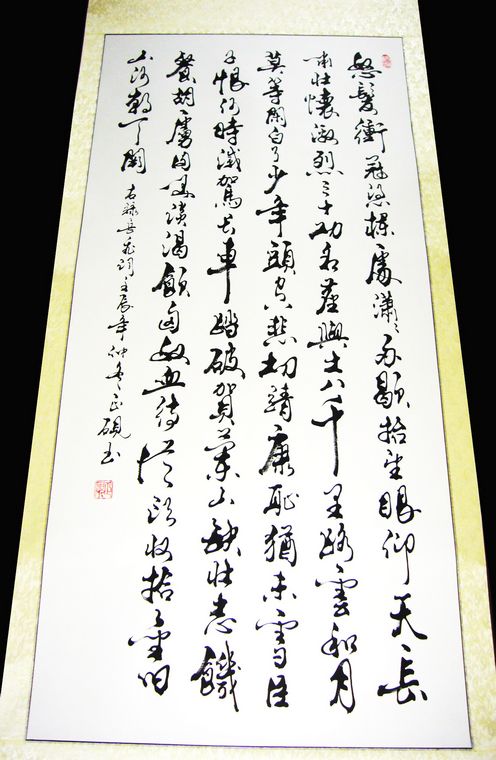 怒髮衝冠憑欄處瀟瀟雨歇抬望眼仰天長
嘯壯懷激烈三十功名塵與土八千里路雲和月
莫等閑白了少年頭空悲切靖康恥猶未雪臣
子恨何時滅駕長車踏破賀蘭山缺壯志饑
餐胡虜肉笑談渴飲匈奴血待從頭收拾旧
山河朝天闕 右錄岳飛詞壬辰年仲冬正硯書